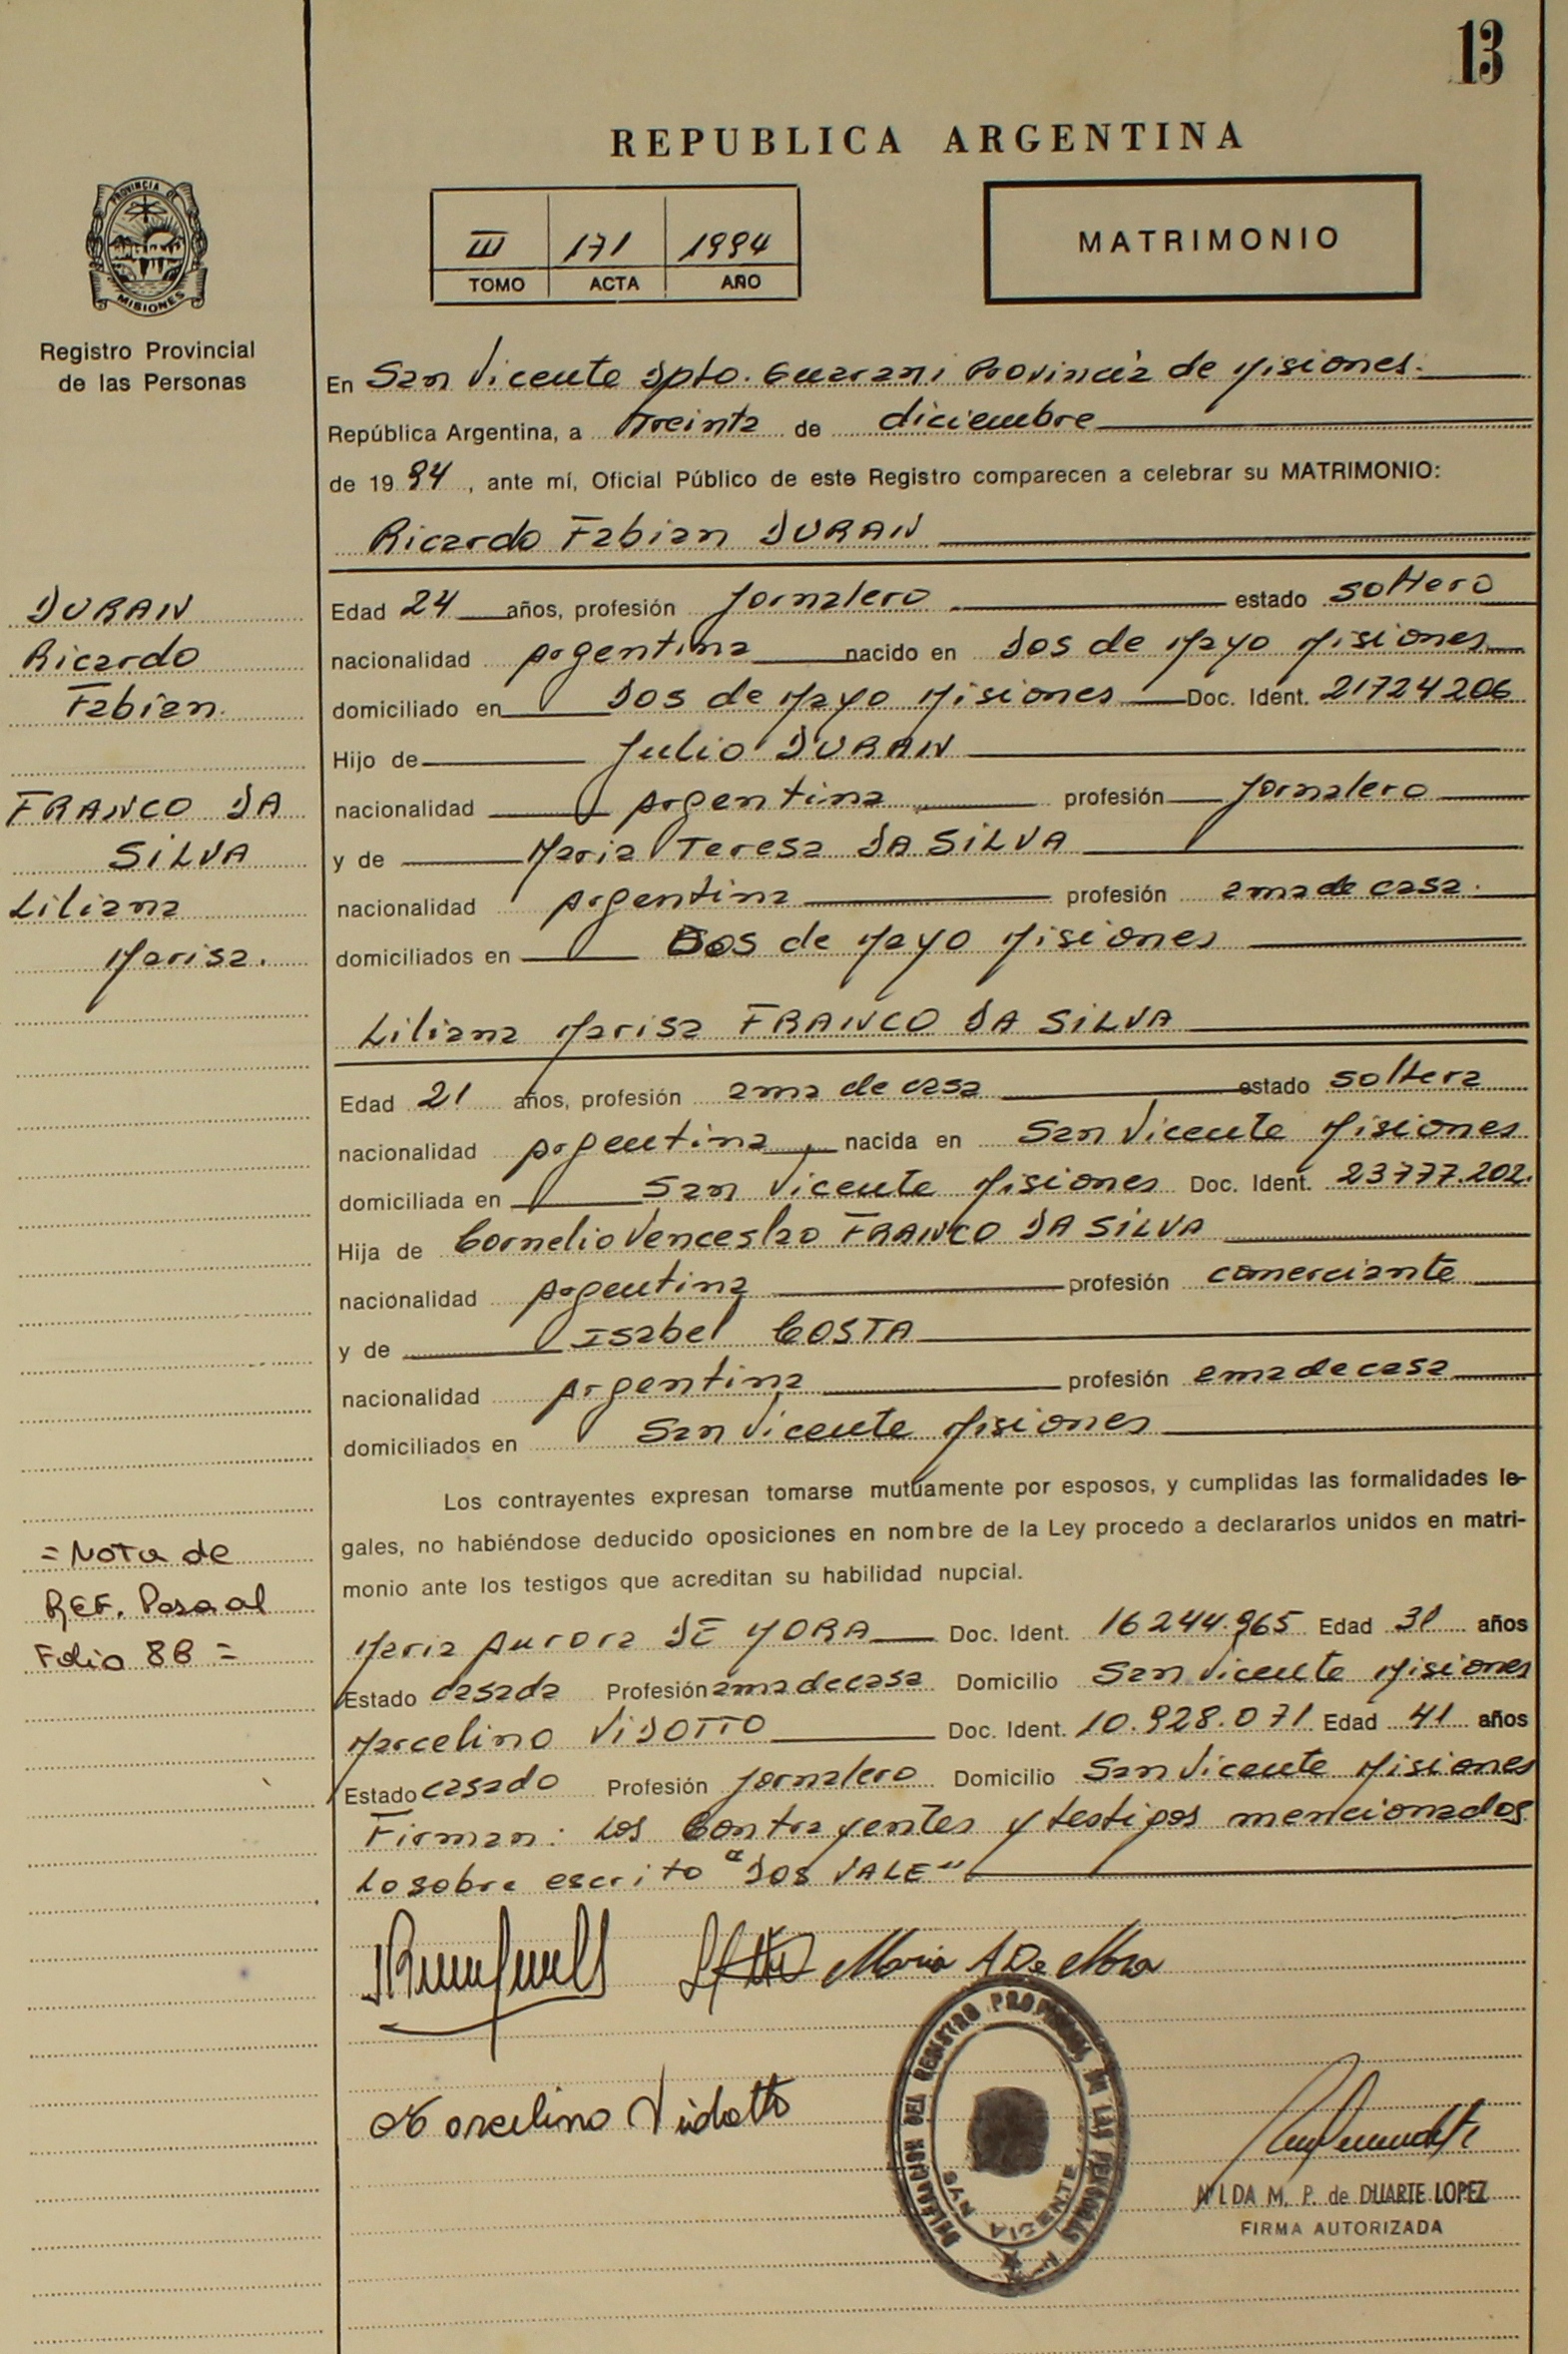 13
REPUBLICA ARGENTINA
PROVINCIA DE
MISIONES
Registro Provincial
de las Personas
III 171 1994
TOMO ACTA AÑO
MATRIMONIO
En San Vicente Dpto. Guarani Provincia de Misiones.
República Argentina, a Treinta de diciembre
de 19 94, ante mí, Oficial Público de este Registro comparecen a celebrar su MATRIMONIO:
Ricardo Fabian DURAN
DURAN
Ricardo
Fabian.
FRANCO DA
SILVA
Liliana
Marisa.
Edad 24 años, profesión Jornalero estado soltero
nacionalidad Argentina nacido en Dos de Mayo Misiones
domiciliado en Dos de Mayo Misiones Doc. Ident. 21724206
Hijo de Julio DURAN
nacionalidad Argentina profesión Jornalero
y de Maria Teresa DA SILVA
nacionalidad Argentina profesión ama de casa.
domiciliados en Dos de Mayo Misiones
Liliana Marisa FRANCO DA SILVA
Edad 21 años, profesión ama de casa estado soltera
nacionalidad Argentina, nacida en San Vicente Misiones
domiciliada en San Vicente Misiones Doc. Ident. 23777.202.
Hija de Cornelio Venceslao FRANCO DA SILVA
nacionalidad Argentina profesión comerciante
y de Isabel COSTA
nacionalidad Argentina profesión ama de casa
domiciliados en San Vicente Misiones
Los contrayentes expresan tomarse mutuamente por esposos, y cumplidas las formalidades le-
gales, no habiéndose deducido oposiciones en nombre de la Ley procedo a declararlos unidos en matri-
monio ante los testigos que acreditan su habilidad nupcial.
= Nota de
REF. Pasa al
Folio 88 =
Maria Aurora DE MORA Doc. Ident. 16244.965 Edad 31 años
Estado casada Profesión ama de casa Domicilio San Vicente Misiones
Marcelino VIDOTTO Doc. Ident. 10.928.071 Edad 41 años
Estado casado Profesión Jornalero Domicilio San Vicente Misiones
Firman: Los Contrayentes y testigos mencionados.
Lo sobre escrito "DOS VALE"
Maria A De Mora
Marcelino Vidotto
DELEGACION DEL REGISTRO PROVINCIAL DE LAS PERSONAS
SAN VICENTE
NILDA M. P. de DUARTE LOPEZ
FIRMA AUTORIZADA